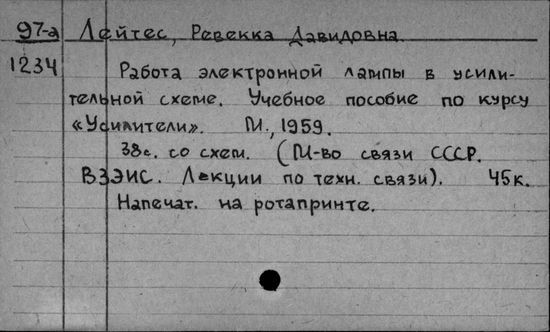 97-а Лейтес, Ревекка Давидовна.
1234 Работа электронной лампы в усили-
тельной схеме. Учебное пособие по курсу
«Усилители». М., 1959.
38с. со схем. (М-во связи СССР.
ВЗЭИС. Лекции по техн. связи). 45к.
Напечат. на ротапринте.